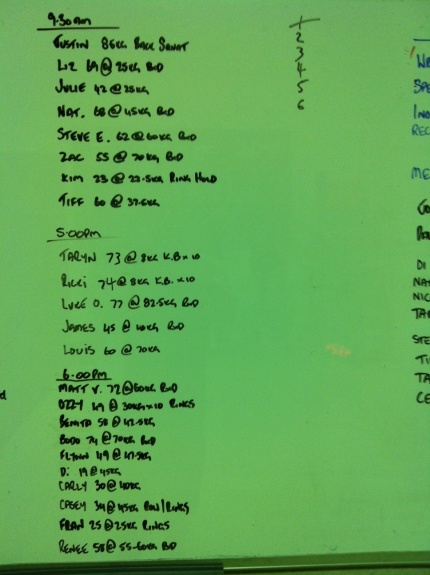 9:30am
JUSTIN 86KG BACK SQUAT
LIZ 69@25KG RXD
JULIE 42@25KG
NAT. 68@45KG RXD
STEVE E. 62@60KG RXD
ZAC 55@70KG RXD
KIM 23@22.5KG RING HOLD
TIFF 60@37.5KG
5:00PM
TARYN 73@8KG K.B.x10
RICCI 74@8KG K.B.x10
LUKE O. 77@82.5KG RXD
JAMES 45@40KG RXD
LOUIS 60@70KG
6:00PM
MATT V. 72@60KG RXD
OZZY 49@30KGx10 RINGS
BENITA 58@42.5KG
BODO 74@70KG RXD
FLYNN 49@47.5KG
Di 19@45KG
CARLY 30@40KG
CASEY 34@45KG ROW/RINGS
FRAN 25@25KG RINGS
RENEE 58@55-60KG RXD
1
2
3
4
5
6
ME
DI
NA
NIC
TA
STE
TI
TA
CE